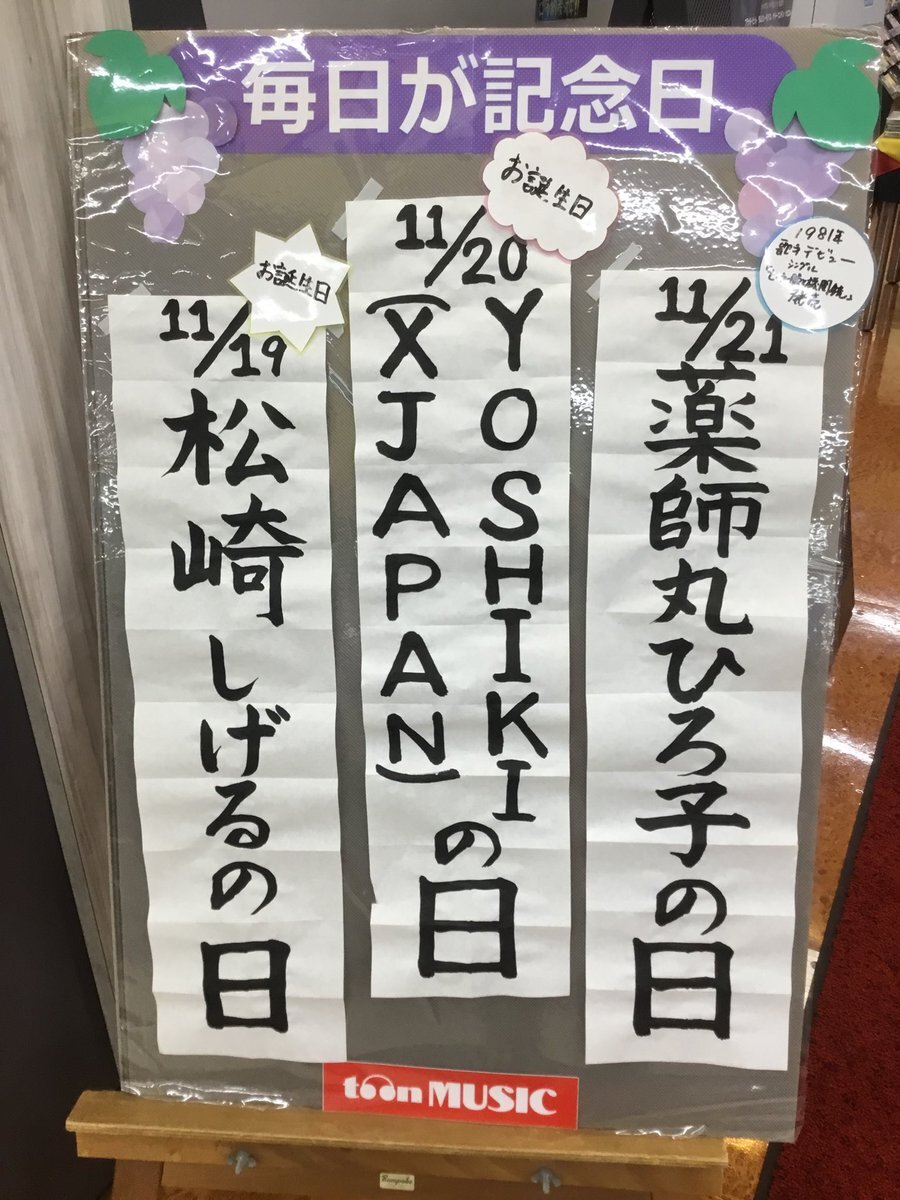 毎日が記念日
11/19
お誕生日
松崎しげるの日
11/20
お誕生日
YOSHIKI
(X JAPAN)の日
11/21
1981年
歌手デビュー
シングル
発売
薬師丸ひろ子の日
toon MUSIC